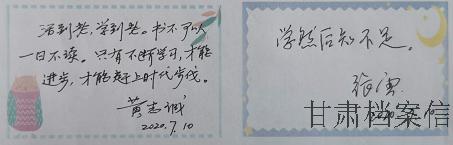 活到老，学到老。书不可以
一日不读。只有不断学习，才能
进步，才能赶上时代步伐。
黄志诚
2020.7.10
学然后知不足。
甘肃档案信